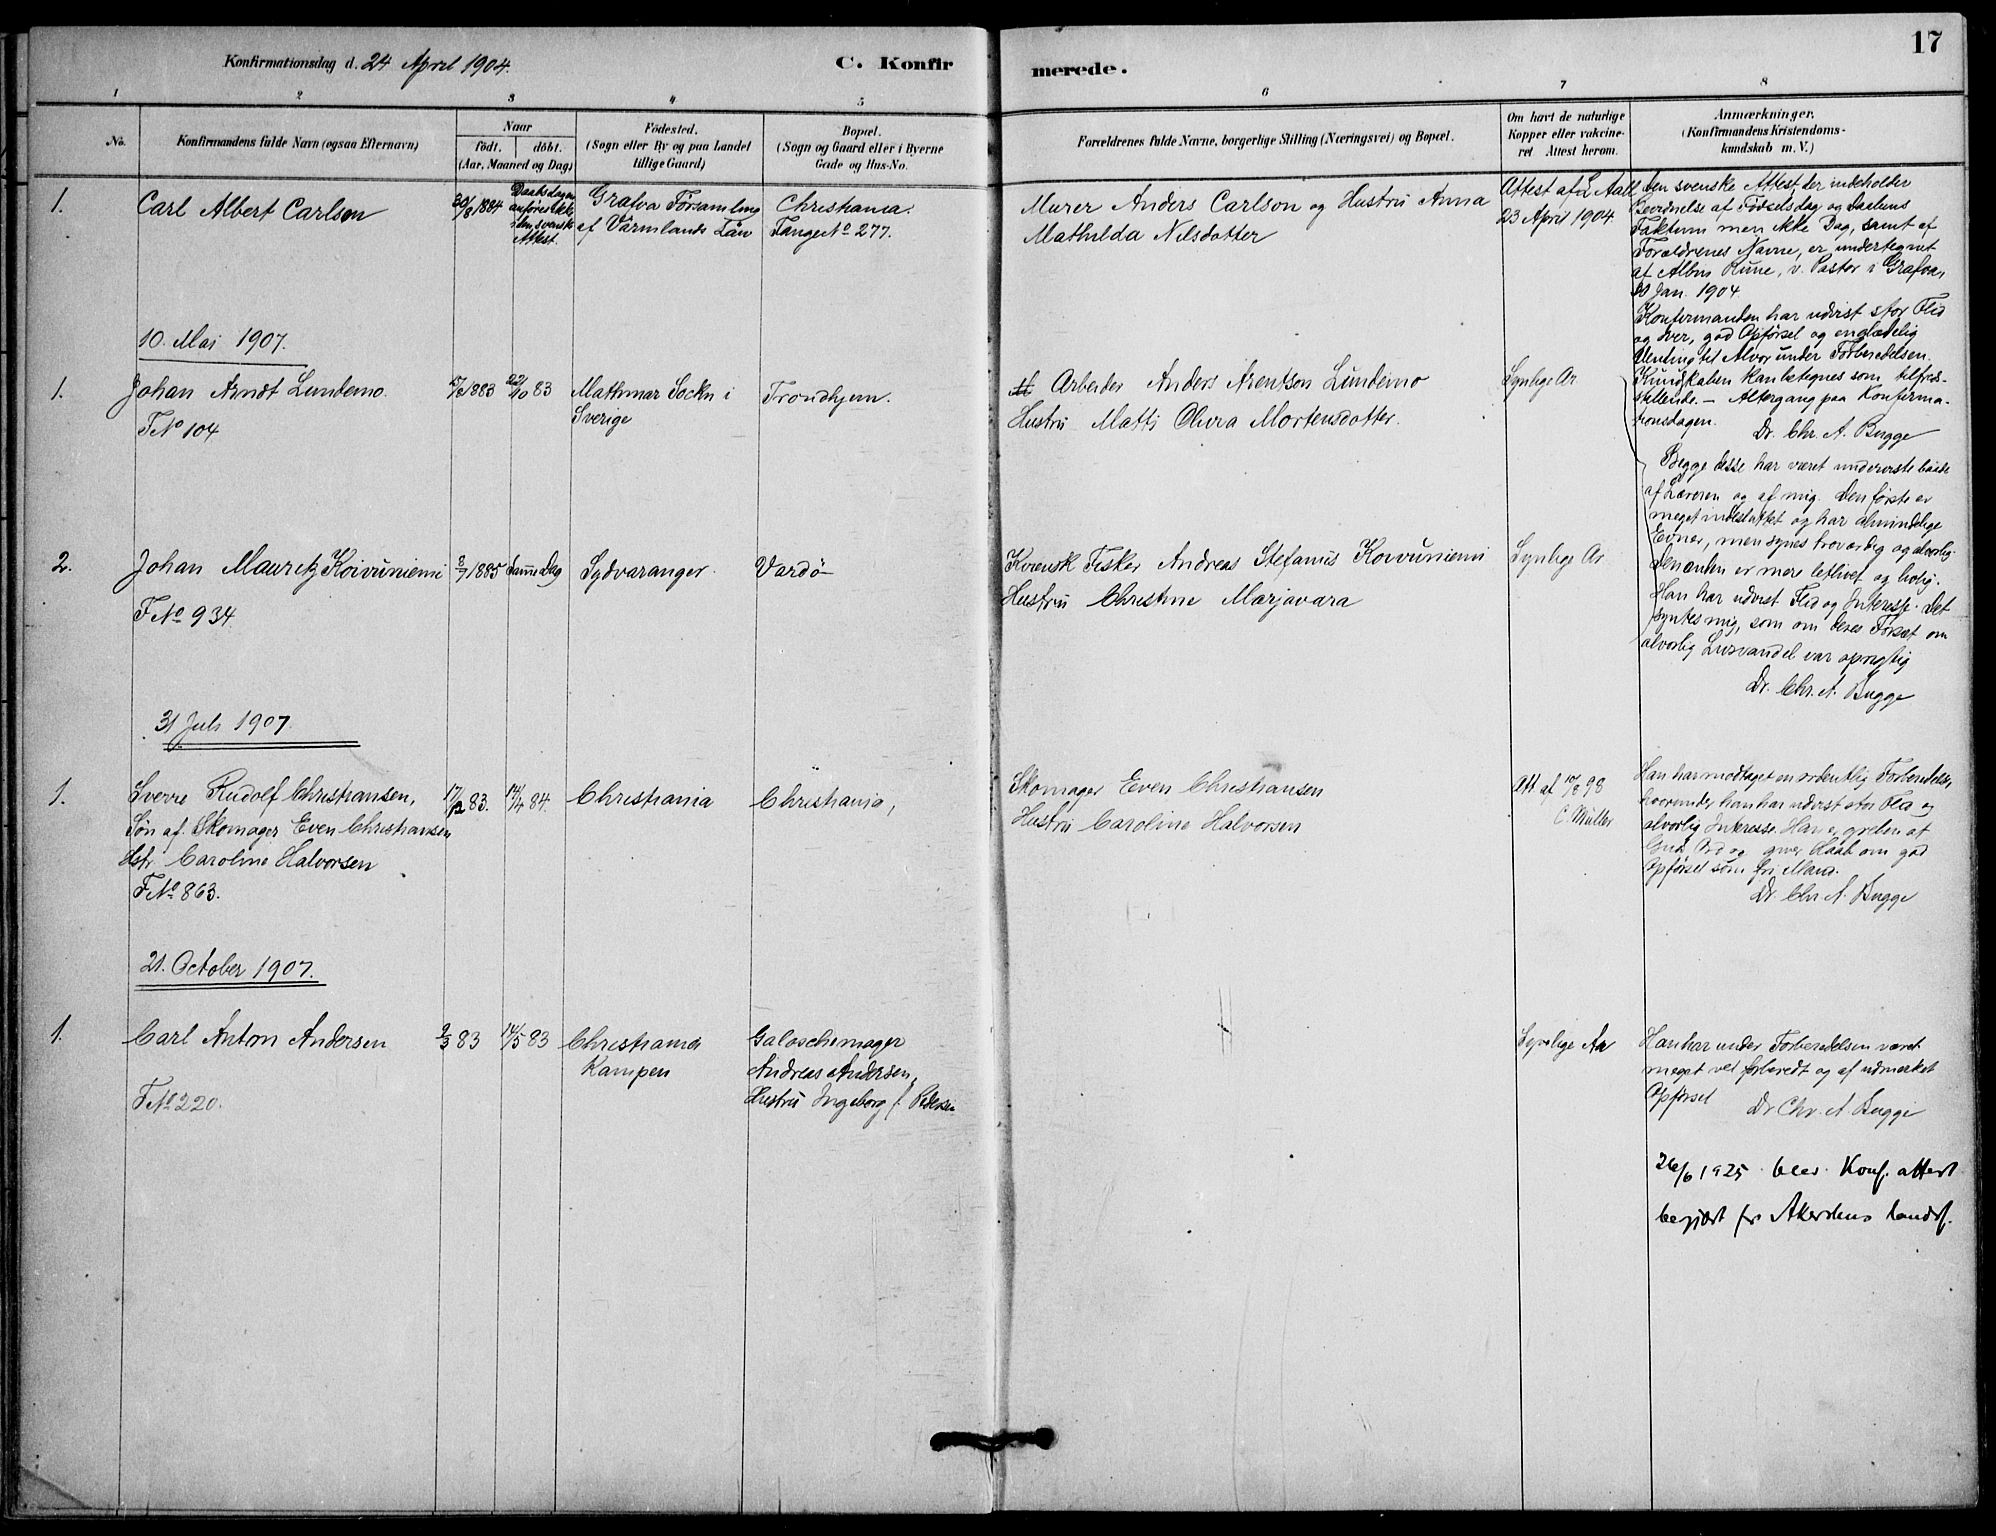 17
Konfirmationsdag d. 24 April 1904.
C. Konfir
merede.
1 2 3 4 5 6 7 8
No.
Konfirmandens fulde Navn (ogsaa Efternavn)
Naar
født. døbt.
(Aar, Maaned og Dag)
Fødested.
(Sogn eller By og paa Landet
tillige Gaard)
Bopæl.
(Sogn og Gaard eller i Byerne
Gade og Hus-No.
Forældrenes fulde Navne, borgerlige Stilling (Næringsvei) og Bopæl.
Om havt de naturlige
Kopper eller vakcine-
ret Attest herom.
Anmærkninger.
(Konfirmandens Kristendoms-
kundskab m. V.)
1.
Carl Albert Carlson
30/8 1884
Daabsdagen
anføres ikke
i den svenske
Attest.
Grafva Församling
af Värmlands Län
Christiania.
Fange No 277.
Murer Anders Carlson og Hustru Anna
Mathilda Nilsdotter
Attest af L Aall
23 April 1904
Den svenske Attest der indeholder
Bevidnelse af Fødselsdag og Daabens
Faktum men ikke Dag, samt af
Forældrenes Navne, er undertegnet
af Albin Rune, v. Pastor i Grafva,
30 Jan. 1904.
Konfirmanden har udvist stor Flid
og Iver, god Opførsel og en glædelig
Vending til Alvor under Forberedelsen.
Kundskaben kan betegnes som tilfreds-
stillende. — Altergang paa Konfirma-
tionsdagen.
Dr. Chr. A. Bugge
10. Mai 1907.
1.
Johan Arndt Lundemo.
F No 104
1883
22/10 83
Mathmar Sockn i
Sverige
Trondhjem.
Arbeider Anders Arentson Lundemo
Hustru Matti Oliva Mortensdotter.
Synlige Ar
Begge disse har været underviste baade
af Læreren og af mig. Den første er
meget indesluttet og har almindelige
Evner, men synes troværdig og alvorlig.
Den anden er mere letlivet og livlig.
Han har udvist Flid og Interesse. Det
syntes mig, som om deres Forsæt om
alvorlig Livsvandel var oprigtig
Dr. Chr. A. Bugge
2.
Johan Mauritz Koivuniemi
F No 934.
8/7 1885
Samme Dag
Sydvaranger.
Vardö
Kvensk Fisker Andreas Stefanus Koivuniemi
Hustru Christine Marjavara
Synlige Ar
31 Juli 1907.
1.
Sverre Rudolf Christiansen,
Søn af Skomager Even Christiansen
Hstr. Caroline Halvorsen
F No 863.
17/12 83.
14/4 84.
Christiania
Christiania,
Skomager Even Christiansen
Hustru Caroline Halvorsen
Att af 10/8 98
C. Müller
Han har modtaget en ordentlig Forberedelse,
hvorunder han har udvist stor Flid og
alvorlig Interesse. Han er greben af
Guds Ord og giver Haab om god
Opførsel som fri Mand.
Dr. Chr. A. Bugge
21. October 1907.
1.
Carl Anton Andersen
F No 220.
9/3 83
14/5 83
Christiania
Kampen
Galoschemager
Andreas Andersen,
Hustru Ingeborg f. Pedersen
Synlige Ar
Han har under Forberedelsen været
meget vel forberedt og af udmerket
Opførsel
Dr Chr. A. Bugge
26/6 1925 blev Konf. attest
begjært fr Akershus landsf.